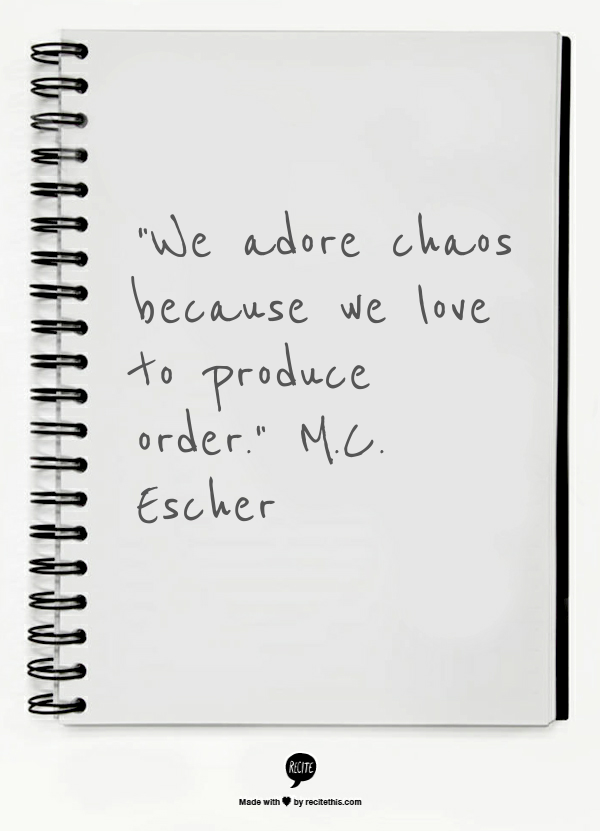 "We adore chaos
because we love
to produce
order." M.C.
Escher
RECITE
Made with ♥ by recitethis.com